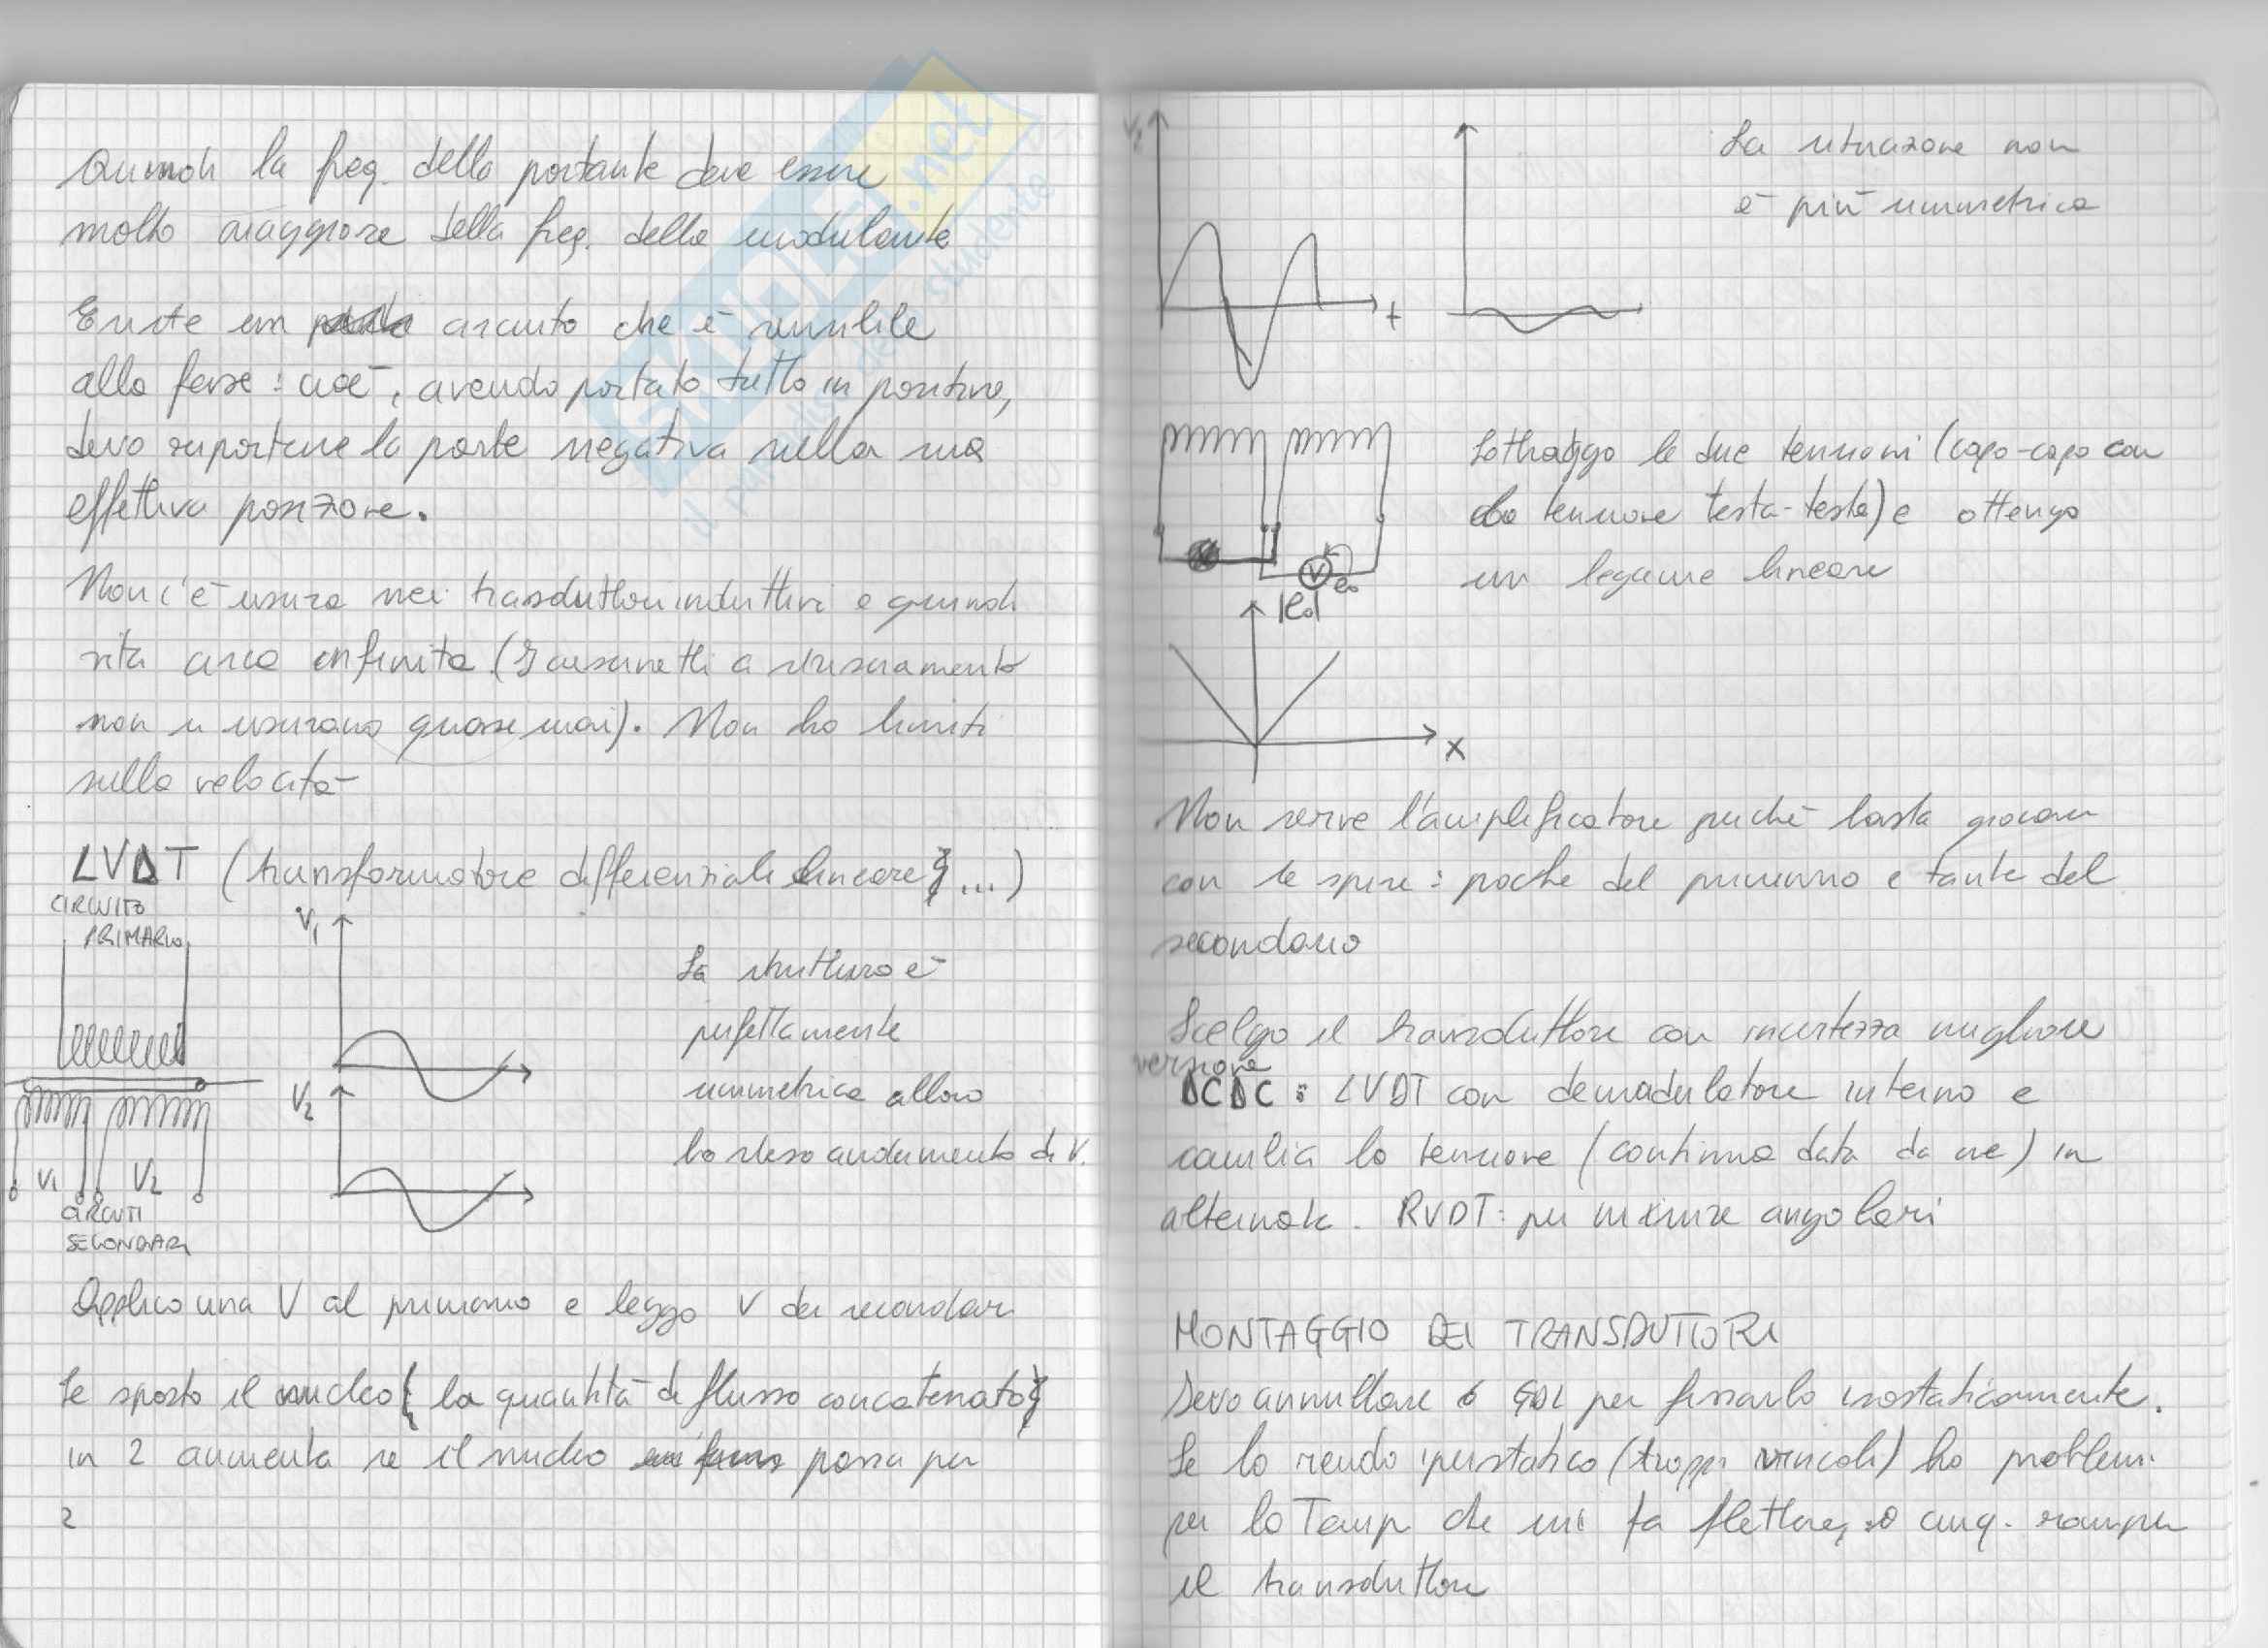 Quindi la freq. della portante deve essere
molto maggiore della freq. della modulante
Esiste un circuito che è sensibile
alla fase: cioè, avendo portato tutto in positivo,
devo riportare la parte negativa nella sua
effettiva posizione.
Non c'è usura nei trasduttori induttivi e quindi
vita circa infinita (I cuscinetti a strisciamento
non si usurano quasi mai). Non ho limiti
sulla velocità
LVDT (transformatore differenziale lineare, ...)
CIRCUITO
PRIMARIO
V1
V2
V1 V2
CIRCUITI
SECONDARI
La struttura è
perfettamente
simmetrica allora
ho stesso andamento di V.
Applico una V al primario e leggo V dei secondari
Se sposto il nucleo la quantità di flusso concatenato
in 2 aumenta se il nucleo passa per
2
V2
t
La situazione non
è più simmetrica
V
eo
Sottraggo le due tensioni (capo-capo con
tensione testa-testa) e ottengo
un legame lineare
|eo|
x
Non serve l'amplificatore perché basta giocare
con le spire: poche del primario e tante del
secondario
Scelgo il transduttore con incertezza migliore
versione
DCDC: LVDT con demodulatore interno e
cambia la tensione (continua data da me) in
alternata. RVDT: per misure angolari
MONTAGGIO DEI TRANSDUTTORI
Devo annullare 6 GDL per fissarlo isostaticamente.
Se lo rendo iperstatico (troppi vincoli) ho problemi
per la Temp che mi fa flettere, o cmq. rompere
il transduttore
SKUOLA.net
il paradiso dello studente